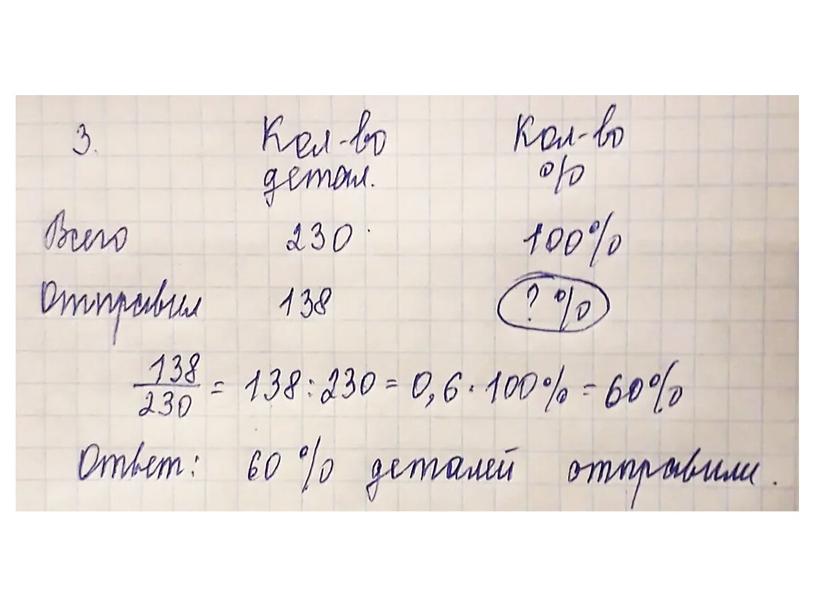 3. Кол-во Кол-во
детал. %
Всего 230 100%
Отправил 138 ? %
138/230 = 138:230 = 0,6 · 100% = 60%
Ответ: 60% деталей отправили.